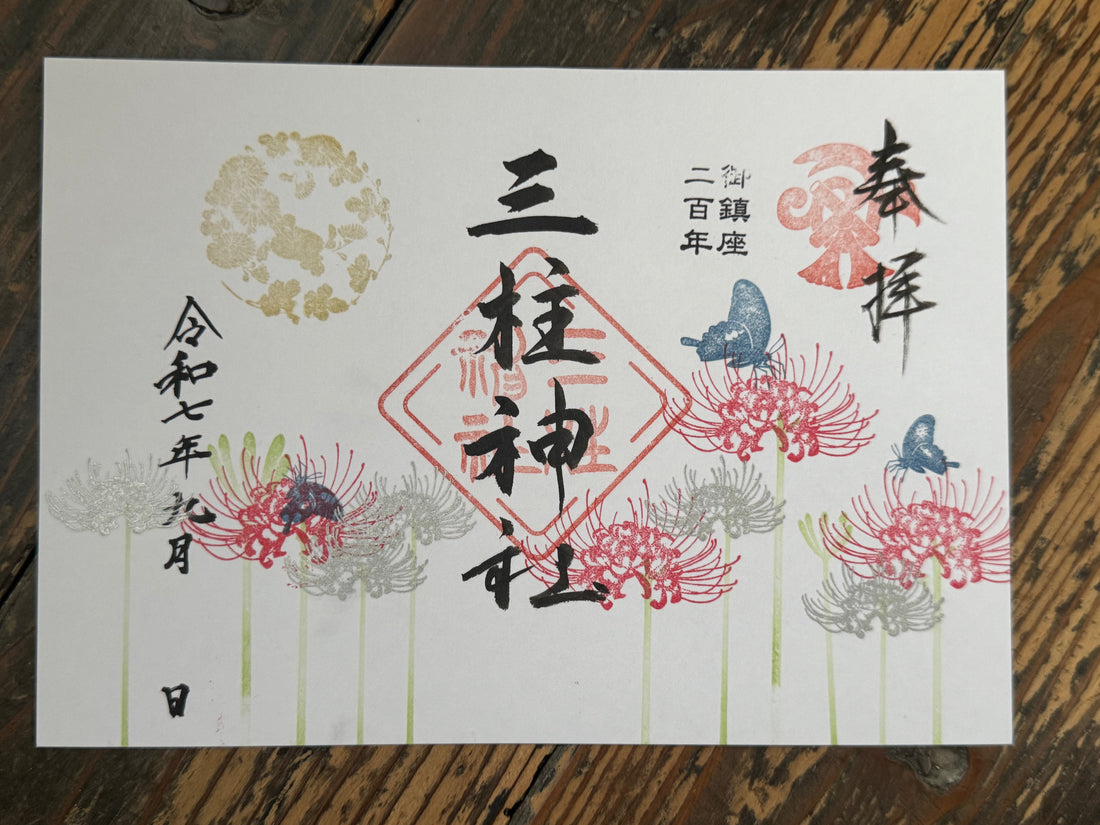 奉拝
御鎮座
二百年
三柱神社
三柱
神社
令和七年九月 日